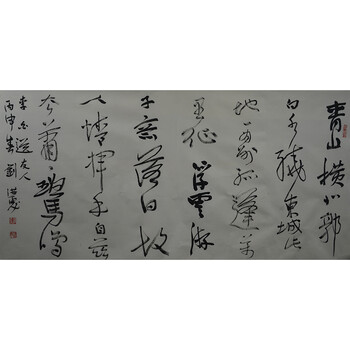 青山横北郭
白水繞東城此
地一为别孤蓬万
里征浮雲游
子意落日故
人情揮手自兹
去蕭々班馬鳴
李白送友人
丙申春劉